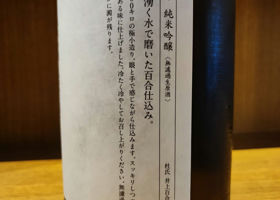 純米吟醸〈無濾過生原酒〉
湧く水で磨いた百合仕込み。
0キロの極小造り。眼と手で感じながら仕込みます。スッキリしつつ
ある味に仕上げました。冷たく冷やしてお召し上がりください。無濾過
に澱が残ります。
杜氏 井上百合